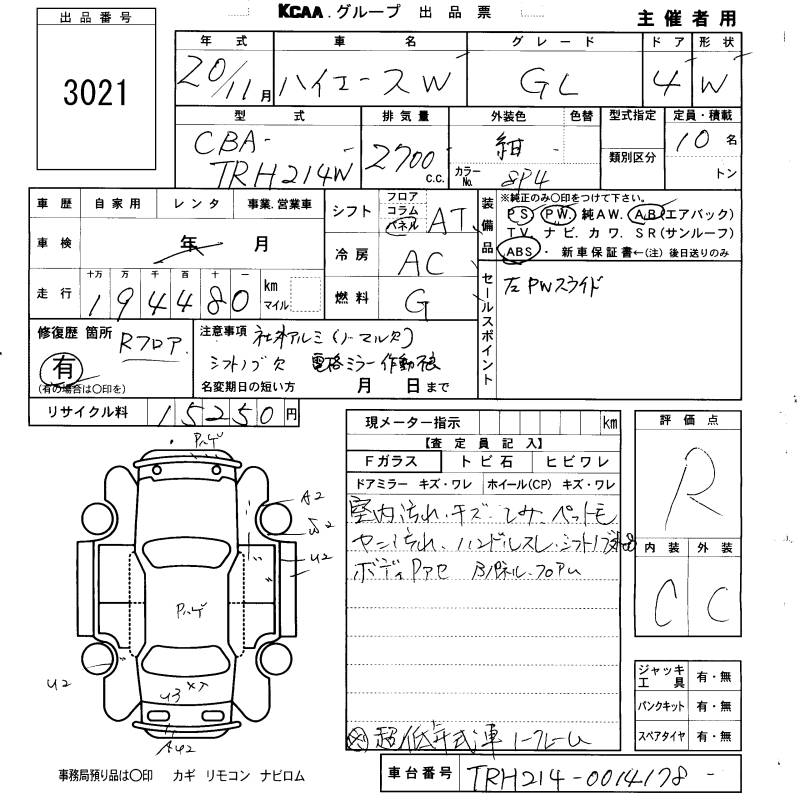 KCAA グループ 出品票
主催者用
出品番号
3021
年式 車名 グレード ドア 形状
20/11月 ハイエースW GL 4 W
型式 排気量 外装色 色替 型式指定 定員・積載
CBA-TRH214W 2700 c.c. 紺 カラーNo. 8P4 類別区分 10名 トン
車歴 自家用 レンタ 事業.営業車
車検 年 月
走行 十万 万 千 百 十 一
194480 km マイル
シフト フロア コラム パネル AT
冷房 AC
燃料 G
装備品 ※純正のみ〇印をつけて下さい。
PS PW 純AW. AB(エアバック)
TV. ナビ. カワ. SR(サンルーフ)
ABS ・ 新車保証書←(注) 後日送りのみ
セールスポイント
左PWスライド
修復歴 箇所 Rフロア
有
(有の場合は〇印を)
注意事項 社外アルミ(ノーマルタ)
シフトノブ欠 電格ミラー作動
名変期日の短い方 月 日まで
リサイクル料 15250円
現メーター指示 km
【査定員記入】
Fガラス トビ石 ヒビワレ
ドアミラー キズ・ワレ ホイール(CP) キズ・ワレ
室内汚れ・キズ ペット毛
ヤニ汚れ ハンドルスレ シフトノブ
ボディPアセ Bパネル・フロア
超低年式車
評価点
R
内装 外装
C C
Pハゲ
A2
U2
Pハゲ
U2
U3
AU2
ジャッキ工具 有・無
パンクキット 有・無
スペアタイヤ 有・無
事務局預り品は〇印 カギ リモコン ナビロム
車台番号 TRH214-0014178